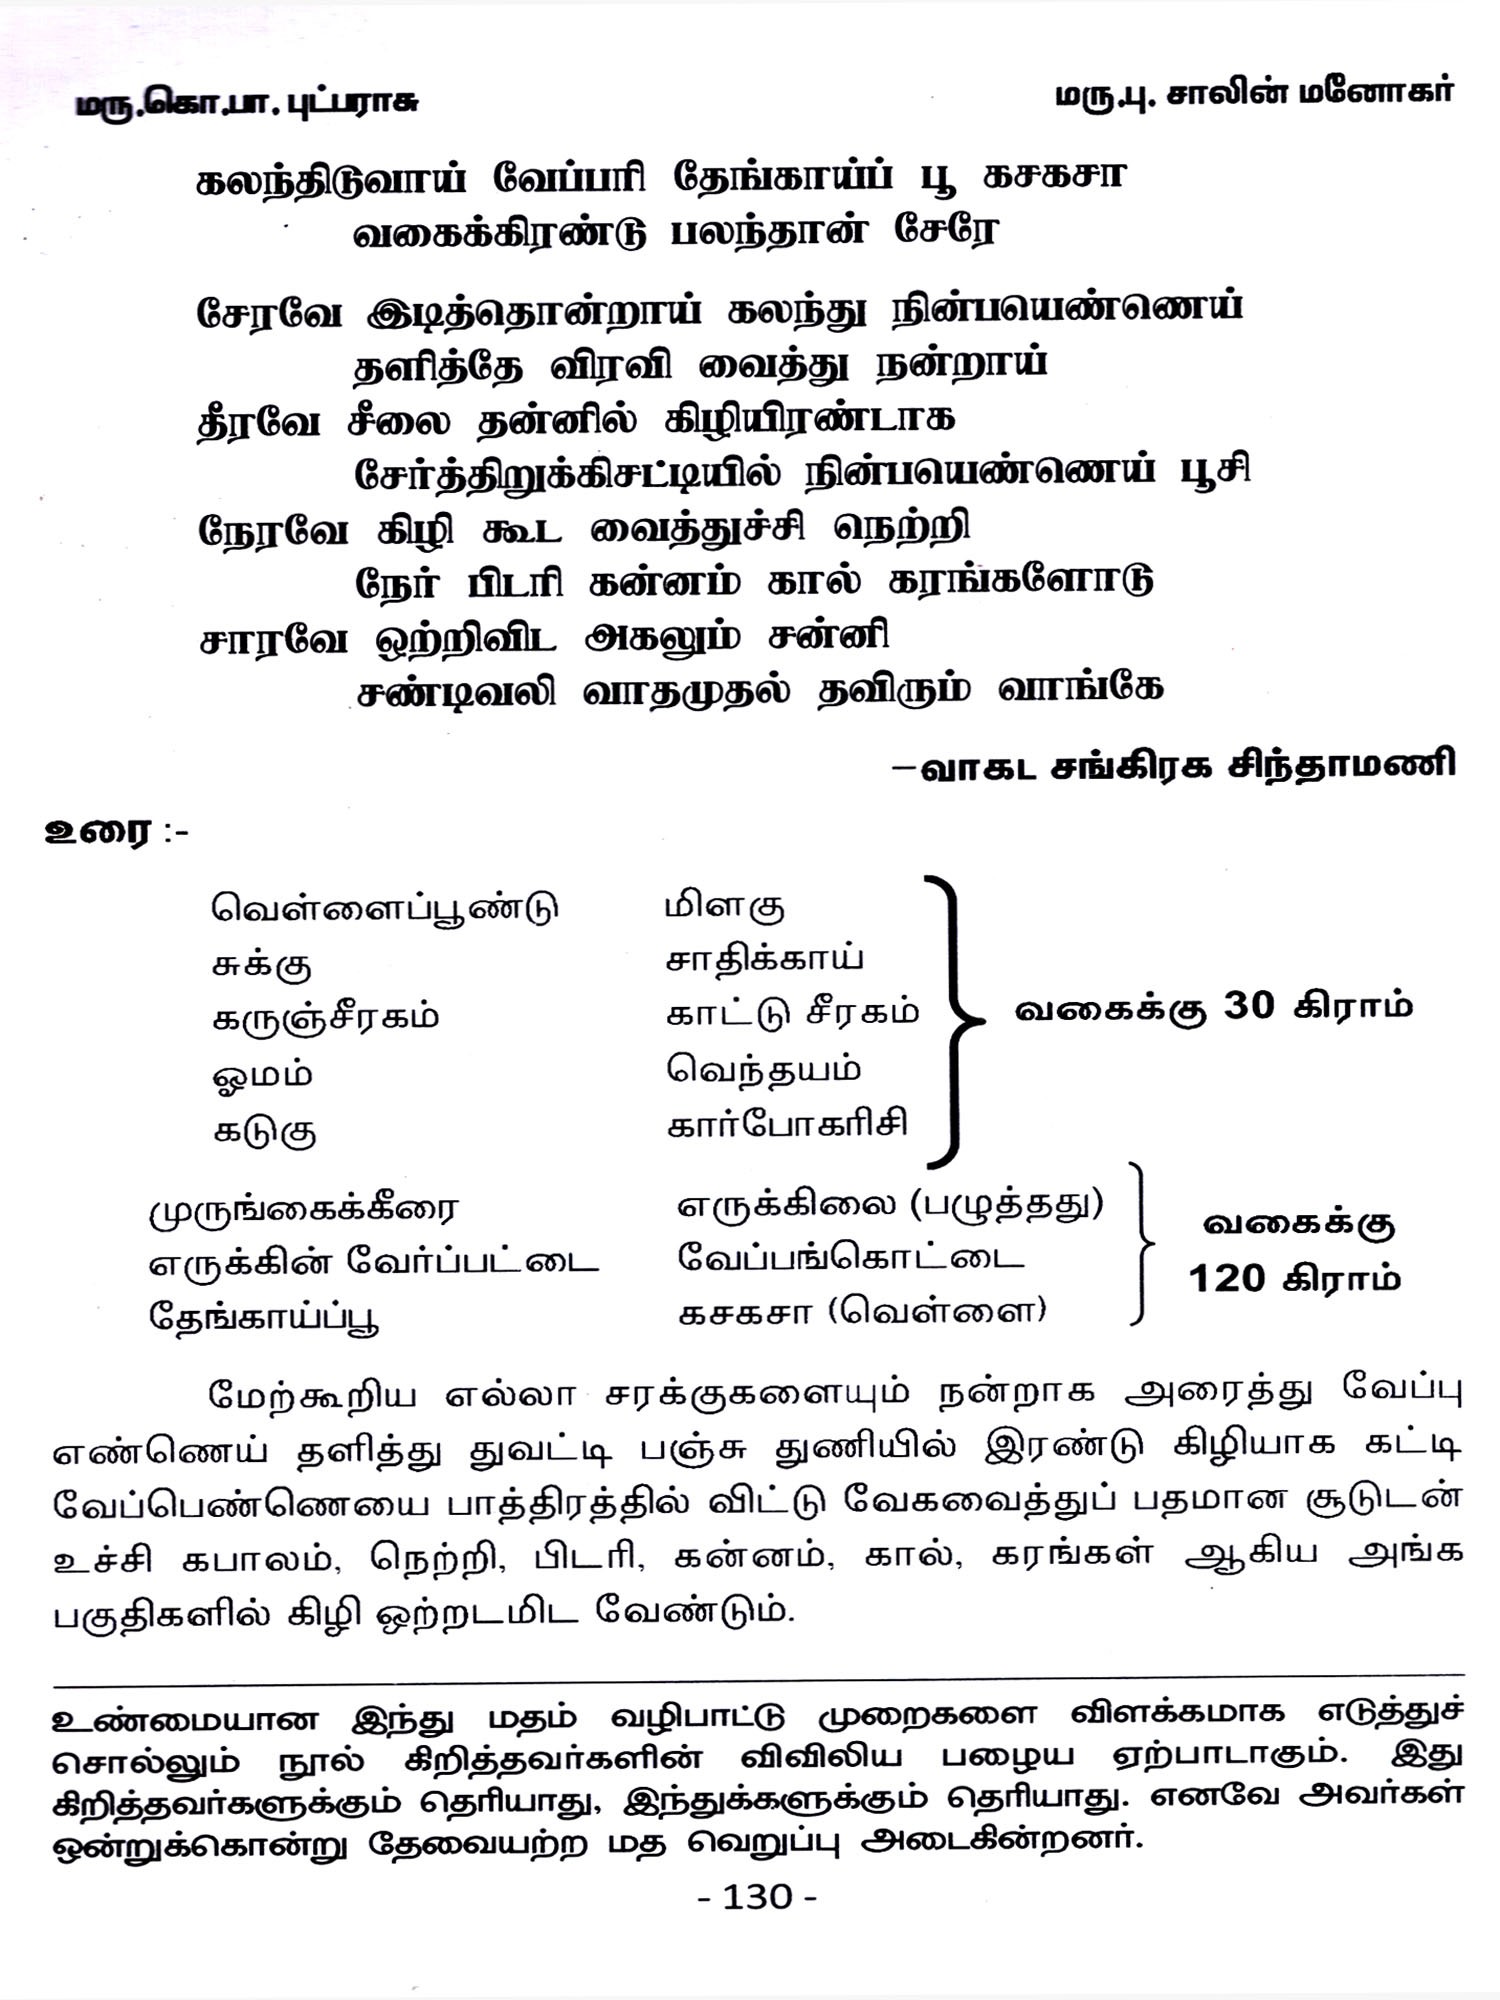 மரு.கொ.பா. புட்பராசு மரு.பு. சாலின் மனோகர்
கலந்திடுவாய் வேப்பரி தேங்காய்ப் பூ கசகசா
வகைக்கிரண்டு பலந்தான் சேரே
சேரவே இடித்தொன்றாய் கலந்து நின்பயெண்ணெய்
தளித்தே விரவி வைத்து நன்றாய்
தீரவே சீலை தன்னில் கிழியிரண்டாக
சேர்த்திறுக்கிசட்டியில் நின்பயெண்ணெய் பூசி
நேரவே கிழி கூட வைத்துச்சி நெற்றி
நேர் பிடரி கன்னம் கால் கரங்களோடு
சாரவே ஒற்றிவிட அகலும் சன்னி
சண்டிவலி வாதமுதல் தவிரும் வாங்கே
–வாகட சங்கிரக சிந்தாமணி
உரை :-
வெள்ளைப்பூண்டு மிளகு
சுக்கு சாதிக்காய்
கருஞ்சீரகம் காட்டு சீரகம் வகைக்கு 30 கிராம்
ஓமம் வெந்தயம்
கடுகு கார்போகரிசி
முருங்கைக்கீரை எருக்கிலை (பழுத்தது) வகைக்கு
எருக்கின் வேர்ப்பட்டை வேப்பங்கொட்டை 120 கிராம்
தேங்காய்ப்பூ கசகசா (வெள்ளை)
மேற்கூறிய எல்லா சரக்குகளையும் நன்றாக அரைத்து வேப்பு
எண்ணெய் தளித்து துவட்டி பஞ்சு துணியில் இரண்டு கிழியாக கட்டி
வேப்பெண்ணெயை பாத்திரத்தில் விட்டு வேகவைத்துப் பதமான சூடுடன்
உச்சி கபாலம், நெற்றி, பிடரி, கன்னம், கால், கரங்கள் ஆகிய அங்க
பகுதிகளில் கிழி ஒற்றடமிட வேண்டும்.
உண்மையான இந்து மதம் வழிபாட்டு முறைகளை விளக்கமாக எடுத்துச்
சொல்லும் நூல் கிறித்தவர்களின் விவிலிய பழைய ஏற்பாடாகும். இது
கிறித்தவர்களுக்கும் தெரியாது, இந்துக்களுக்கும் தெரியாது. எனவே அவர்கள்
ஒன்றுக்கொன்று தேவையற்ற மத வெறுப்பு அடைகின்றனர்.
- 130 -